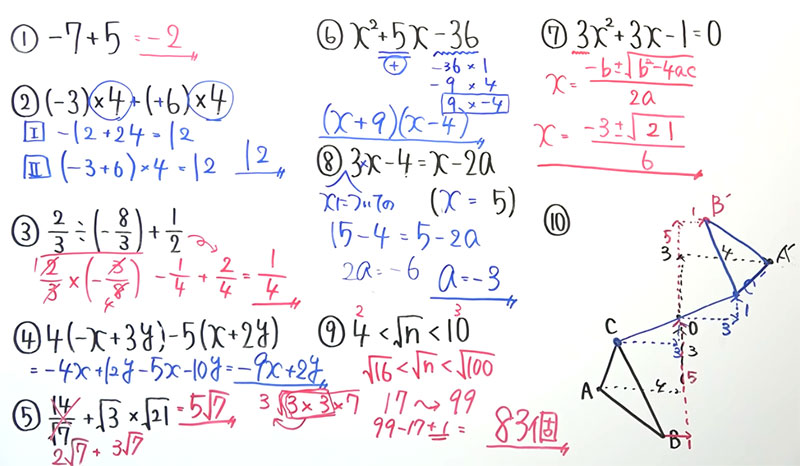 ① -7+5 = -2
② (-3)×4+(+6)×4
Ⅰ -12+24=12
Ⅱ (-3+6)×4=12 12
③ 2/3÷(-8/3)+1/2
2/3×(-3/8) -1/4+2/4=1/4
1 4
④ 4(-x+3y)-5(x+2y)
= -4x+12y-5x-10y=-9x+2y
⑤ 14/√7+√3×√21=5√7 3√3×3×7
2√7+3√7
⑥ x²+5x-36
+ -36×1
-9×4
9×-4
(x+9)(x-4)
⑧ 3×x-4=x-2a
xについての (x=5)
15-4=5-2a
2a=-6 a=-3
⑨ 4<√n<10
2 3
√16<√n<√100
17～99
99-17+1= 83個
⑦ 3x²+3x-1=0
x=-b±√b²-4ac/2a
x=-3±√21/6
⑩
1 B′
5
3 4 A′
C′
O 3 1
C 3 3
A 4 5
B 1